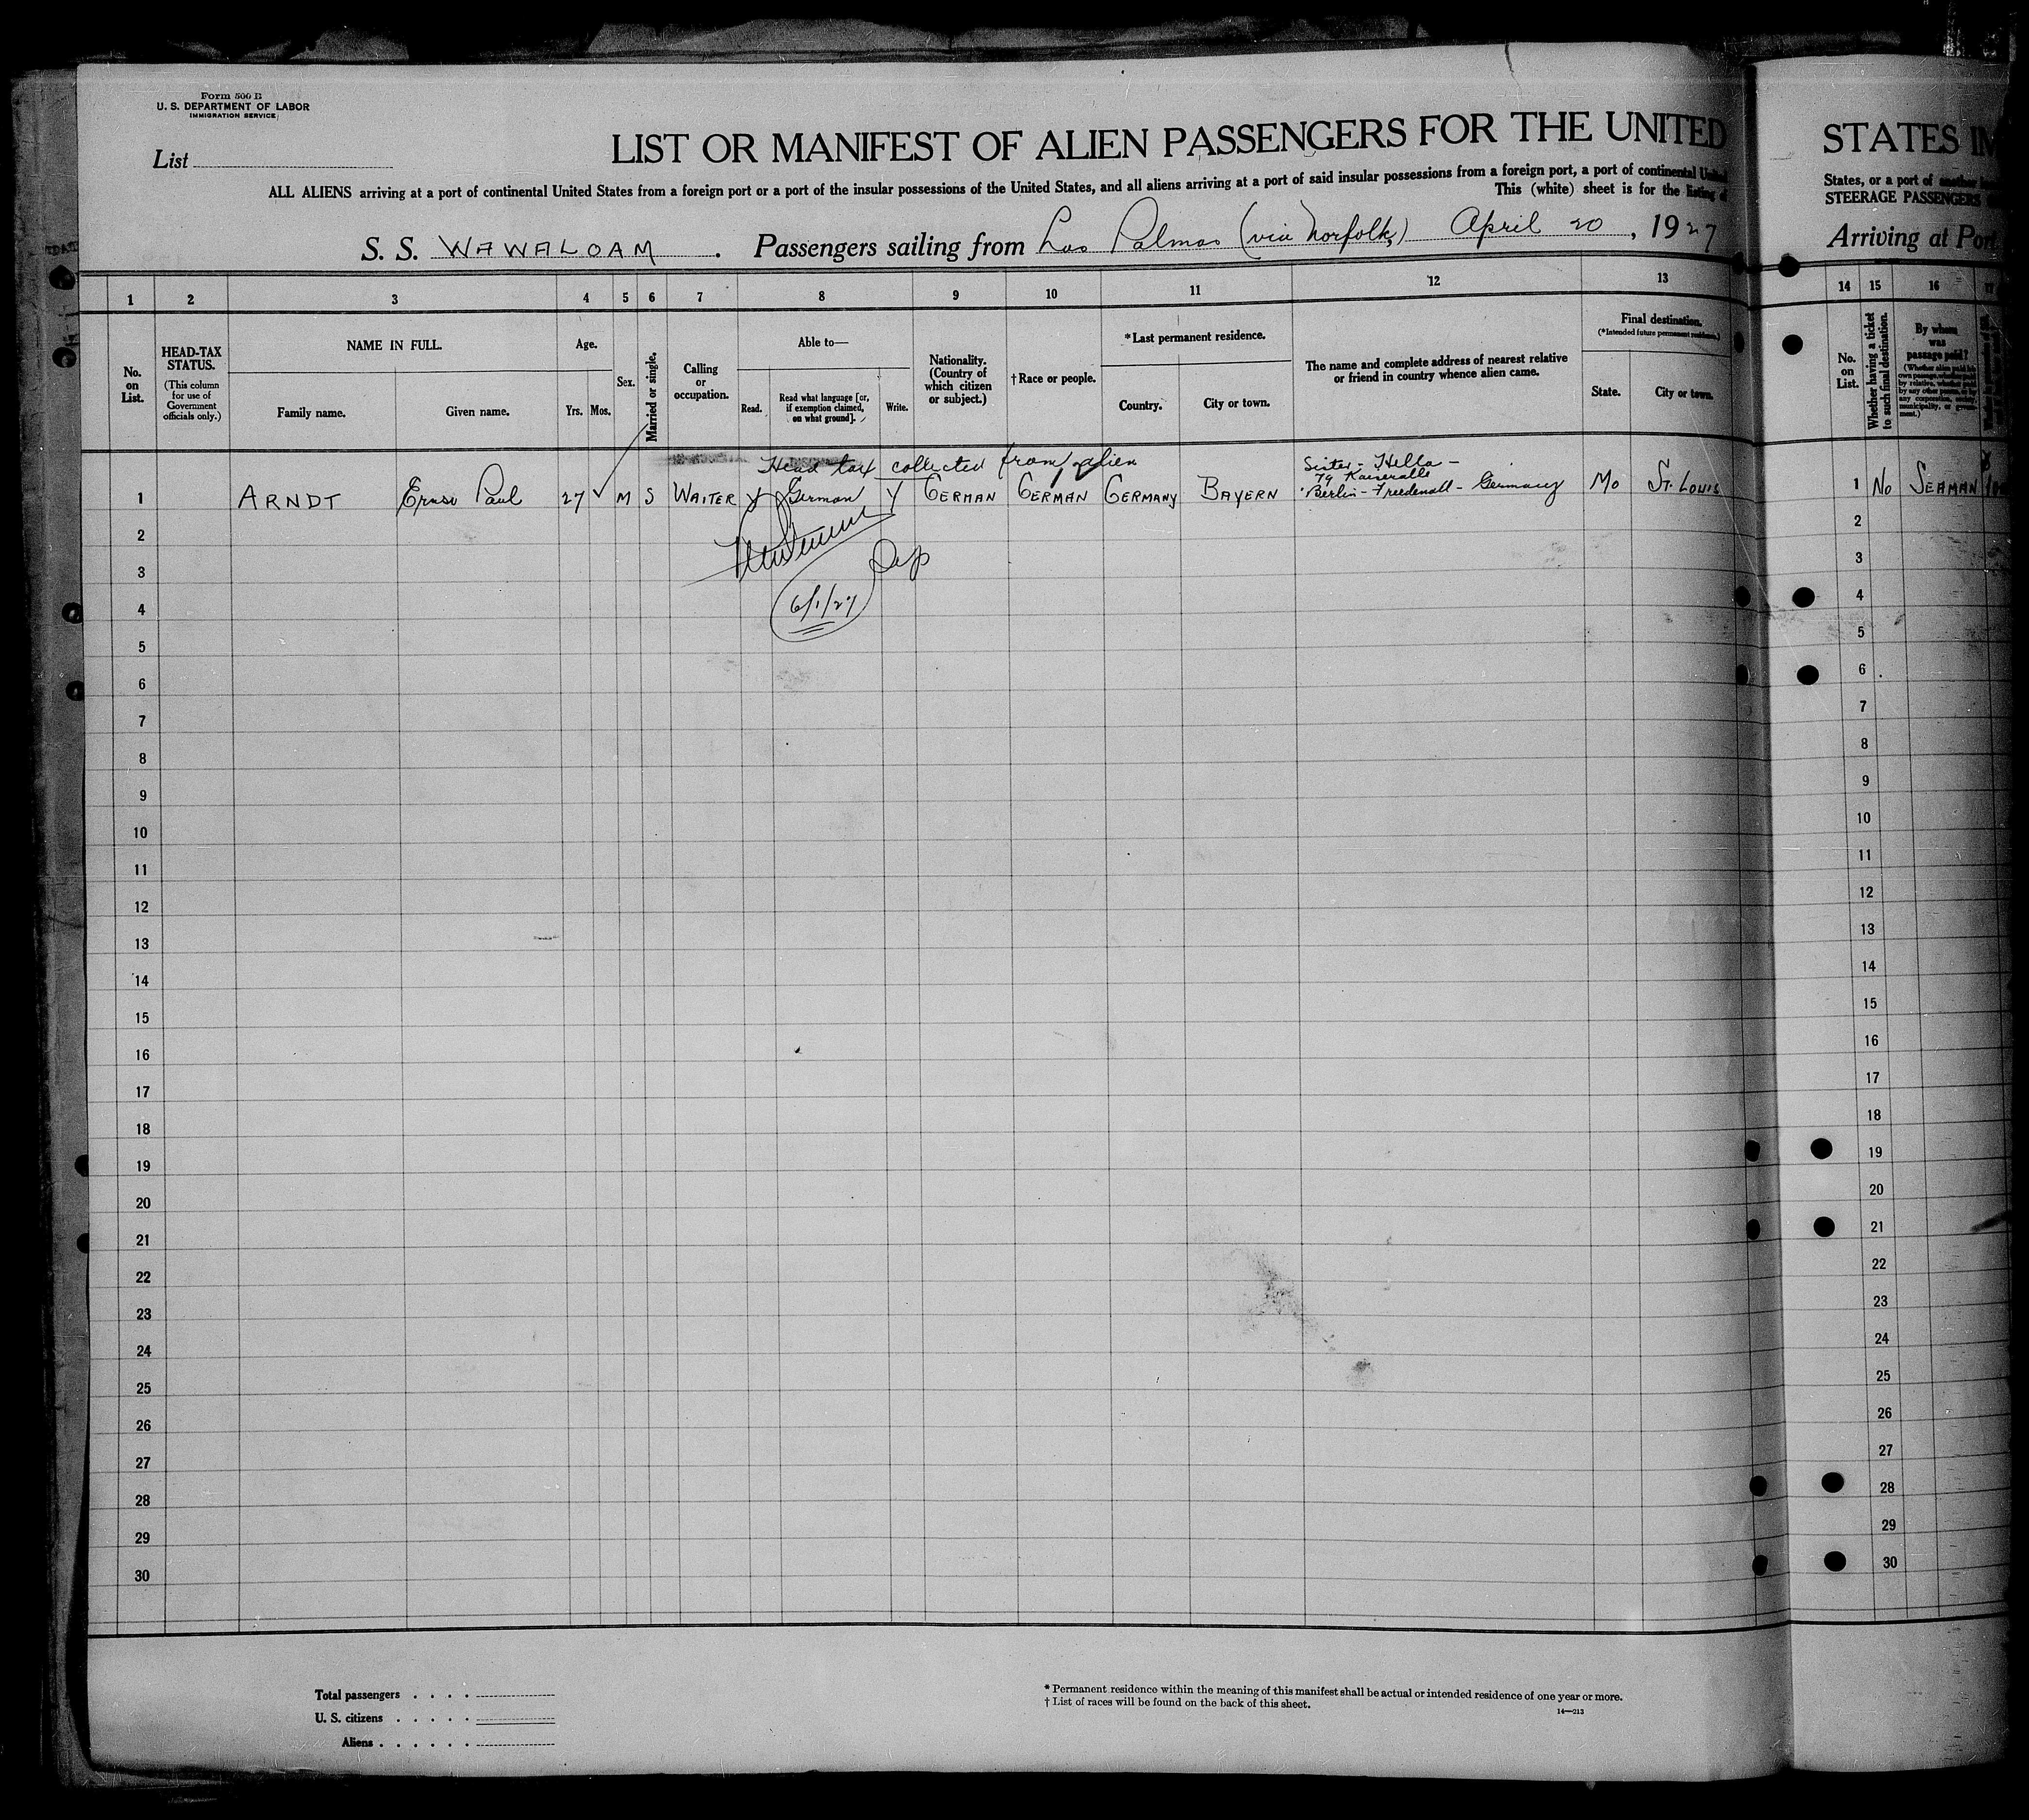 Form 500 B
U. S. DEPARTMENT OF LABOR
IMMIGRATION SERVICE
List
LIST OR MANIFEST OF ALIEN PASSENGERS FOR THE UNITED
ALL ALIENS arriving at a port of continental United States from a foreign port or a port of the insular possessions of the United States, and all aliens arriving at a port of said insular possessions from a foreign port, a port of continental United
This (white) sheet is for the listing of
S. S. WAWALOAM . Passengers sailing from Las Palmas (via Norfolk) April 20 , 1927
1 2 3 4 5 6 7 8 9 10 11 12 13
No. on List.
HEAD-TAX STATUS.
(This column for use of Government officials only.)
NAME IN FULL.
Family name. Given name.
Age.
Yrs. Mos.
Sex.
Married or single.
Calling or occupation.
Able to—
Read. Read what language [or, if exemption claimed, on what ground]. Write.
Nationality. (Country of which citizen or subject.)
† Race or people.
*Last permanent residence.
Country. City or town.
The name and complete address of nearest relative or friend in country whence alien came.
Final destination.
(*Intended future permanent residence.)
State. City or town.
Head tax collected from alien
Sister - Hella -
79 Kaiseralle
1 ARNDT Ernst Paul 27 M S WAITER Y German Y GERMAN GERMAN GERMANY BAYERN Berlin - Freedenall - Germany Mo ST. LOUIS
2
3
Dep
4
6/1/27
5
6
7
8
9
10
11
12
13
14
15
16
17
18
19
20
21
22
23
24
25
26
27
28
29
30
Total passengers . . . .
U. S. citizens . . . . .
Aliens . . . . . .
* Permanent residence within the meaning of this manifest shall be actual or intended residence of one year or more.
† List of races will be found on the back of this sheet.
14—213
STATES IM
States, or a port of another
STEERAGE PASSENGERS
Arriving at Port
14 15 16 17
No. on List.
Whether having a ticket to such final destination.
By whom was passage paid?
1 No SEAMAN
2
3
4
5
6
7
8
9
10
11
12
13
14
15
16
17
18
19
20
21
22
23
24
25
26
27
28
29
30